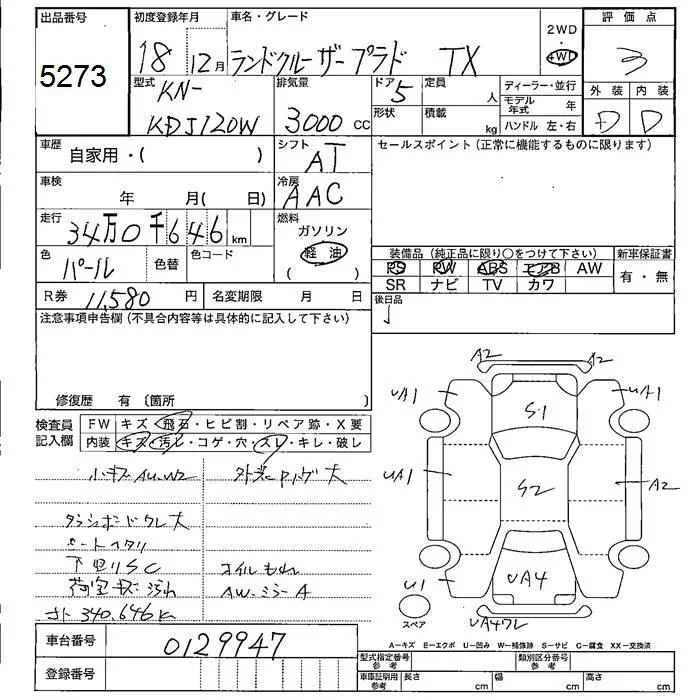 出品番号 初度登録年月 車名・グレード 2WD・4WD 評価点
5273 18 12月 ランドクルーザープラド TX 3
型式 KN-KDJ120W 排気量 3000cc ドア 5 形状 定員 人 積載 kg ディーラー・並行 モデル年式 年 ハンドル 左・右 外装 D 内装 D
車歴 自家用・( ) シフト AT セールスポイント(正常に機能するものに限ります)
車検 年 月( 日) 冷房 AAC
走行 34万0千646km 燃料 ガソリン 軽油 ( )
色 パール 色替 色コード 装備品(純正品に限り○をつけて下さい) 新車保証書
PS PW ABS エアB AW 有・無
SR ナビ TV カワ
R券 11,580円 名変期限 月 日 後日品
注意事項申告欄(不具合内容等は具体的に記入して下さい)
修復歴 有〔箇所 〕
検査員記入欄 FW キズ・飛石・ヒビ割・リペア跡・X要
内装 キズ・汚レ・コゲ・穴・スレ・キレ・破レ
小キズ AU.W2
ダッシュボードワレ大
シートヘタリ
下回りSC
荷室キズ汚れ
メーター 340,646K
オイルもれ
AW・ミラーA
A2 A2
uA1 S1 uA1
uA1 S2 A2
u1 uA4 u1
スペア uA4ワレ
A-キズ E-エクボ U-凹み W-補修跡 S-サビ C-腐食 XX-交換済
車台番号 0129947
型式指定番号 参考 類別区分番号 参考
登録番号 車庫証明用 参考 長さ cm 幅 cm 高さ cm